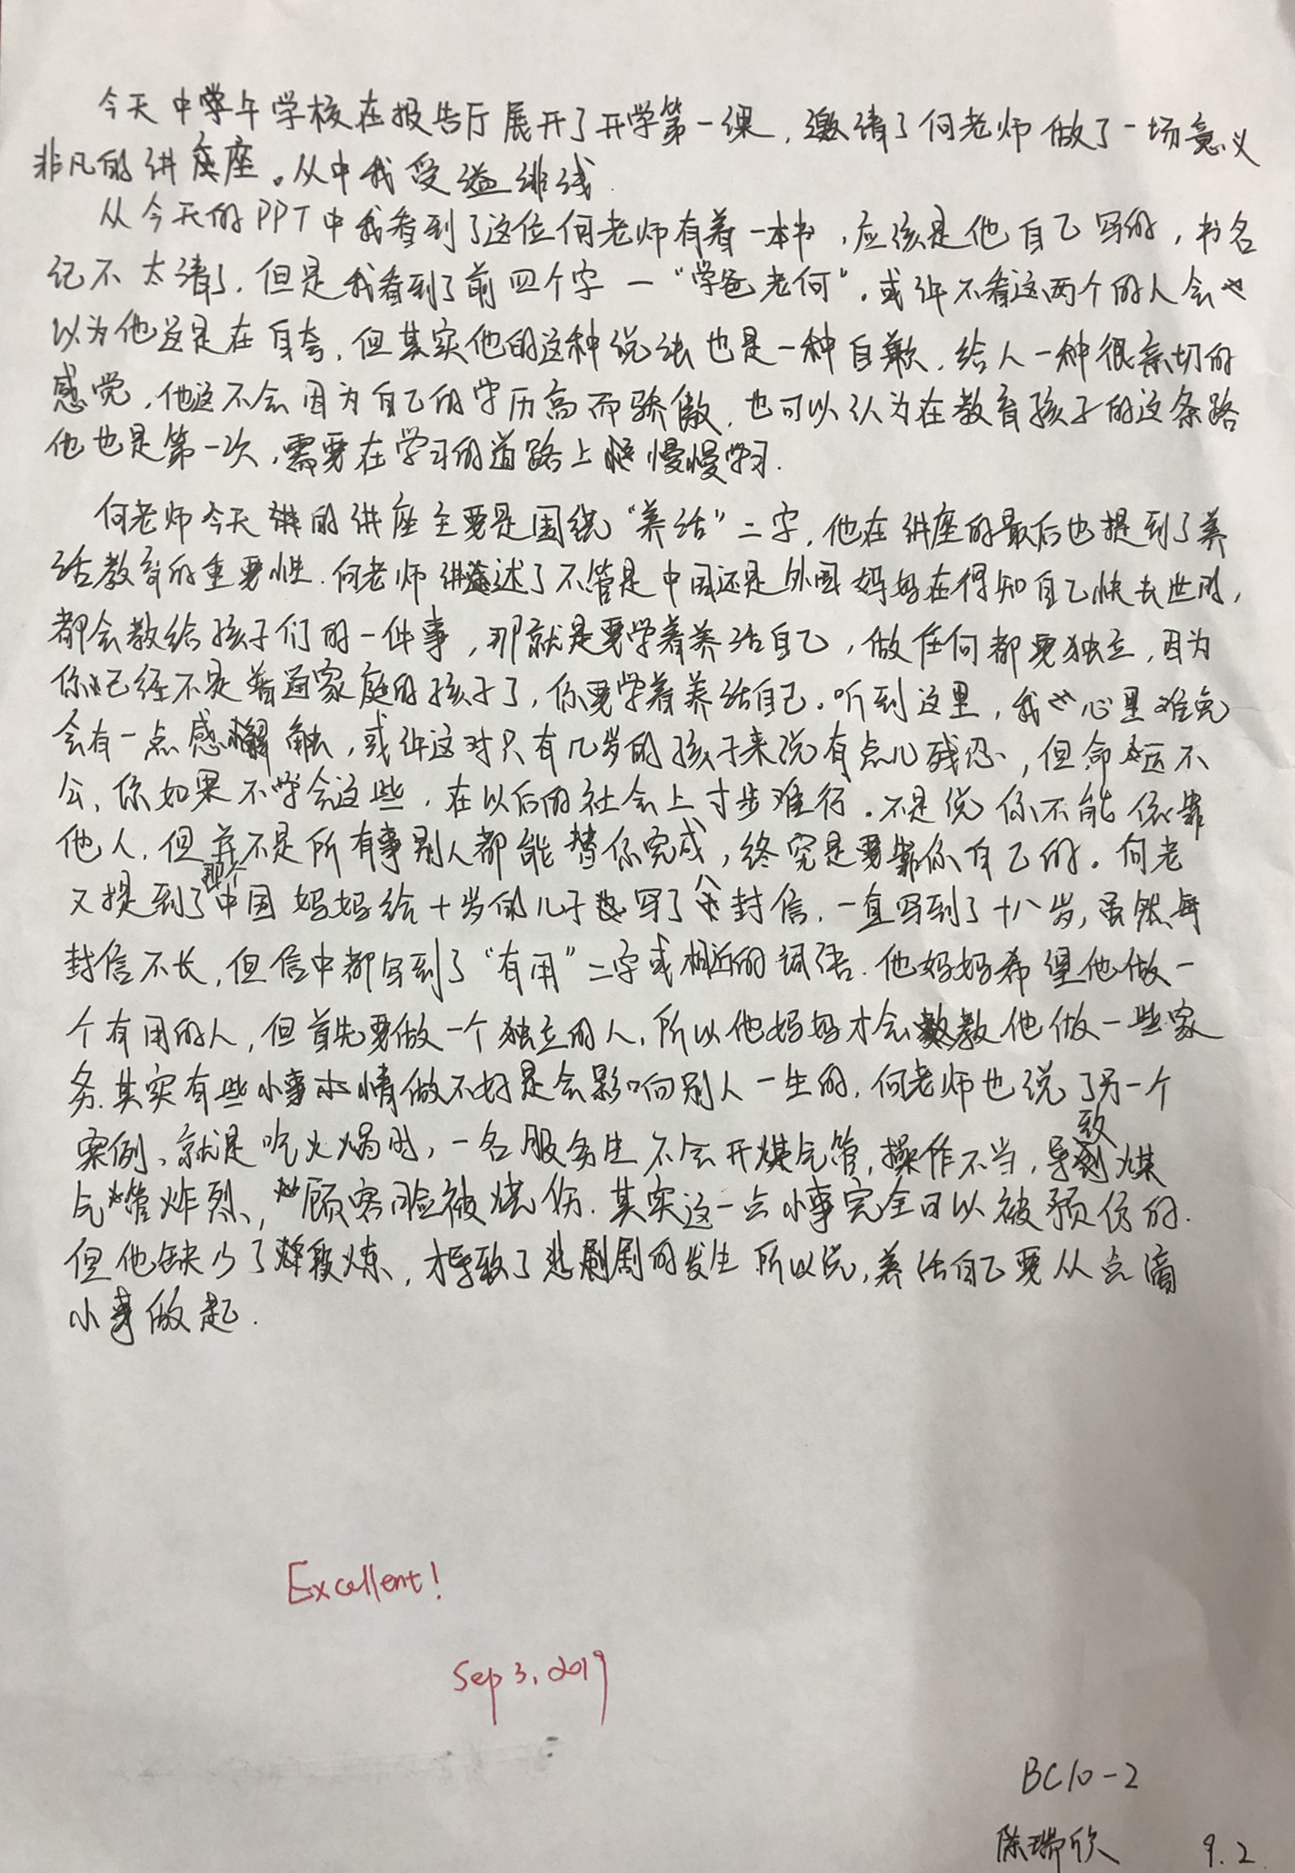 今天中午学校在报告厅展开了开学第一课，邀请了何老师做了一场意义
非凡的讲座。从中我受益绯浅.
从今天的PPT中我看到了这位何老师有着一本书，应该是他自己写的，书名
记不太清了，但是我看到了前四个字一“学爸老何”。或许不看这两个的人会
以为他这是在自夸，但其实他的这种说法也是一种自歉，给人一种很亲切的
感觉，他这不会因为自己的学历高而骄傲，也可以认为在教育孩子的这条路
他也是第一次，需要在学习的道路上慢慢学习.
何老师今天讲的讲座主要是围绕“养活”二字，他在讲座的最后也提到了养
活教育的重要性.何老师讲述了不管是中国还是外国妈妈在得知自己快去世时，
都会教给孩子们的一件事，那就是要学着养活自己，做任何都要独立，因为
你已经不是普通家庭的孩子了，你要学着养活自己。听到这里，我心里难免
会有一点感触，或许这对只有几岁的孩子来说有点儿残忍，但命运不
公，你如果不学会这些，在以后的社会上寸步难行。不是说你不能依靠
他人，但并不是所有事别人都能替你完成，终究是要靠你自己的。何老
又提到了那个中国妈妈给十岁的儿子写了八封信，一直写到了十八岁，虽然每
封信不长，但信中都写到了“有用”二字或相近的词语.他妈妈希望他做一
个有用的人，但首先要做一个独立的人，所以他妈妈才会教他做一些家
务.其实有些小事情做不好是会影响别人一生的，何老师也说了另一个
案例、就是吃火锅时，一名服务生不会开煤气管，操作不当，导致煤
气管炸裂，顾客脸被烧伤.其实这一点小事完全可以被预防的.
但他缺少了锻炼，才导致了悲剧的发生 所以说，养活自己要从点滴
小事做起.
Excellent!
Sep 3, 2019
BC10-2
陈瑞欣 9.2